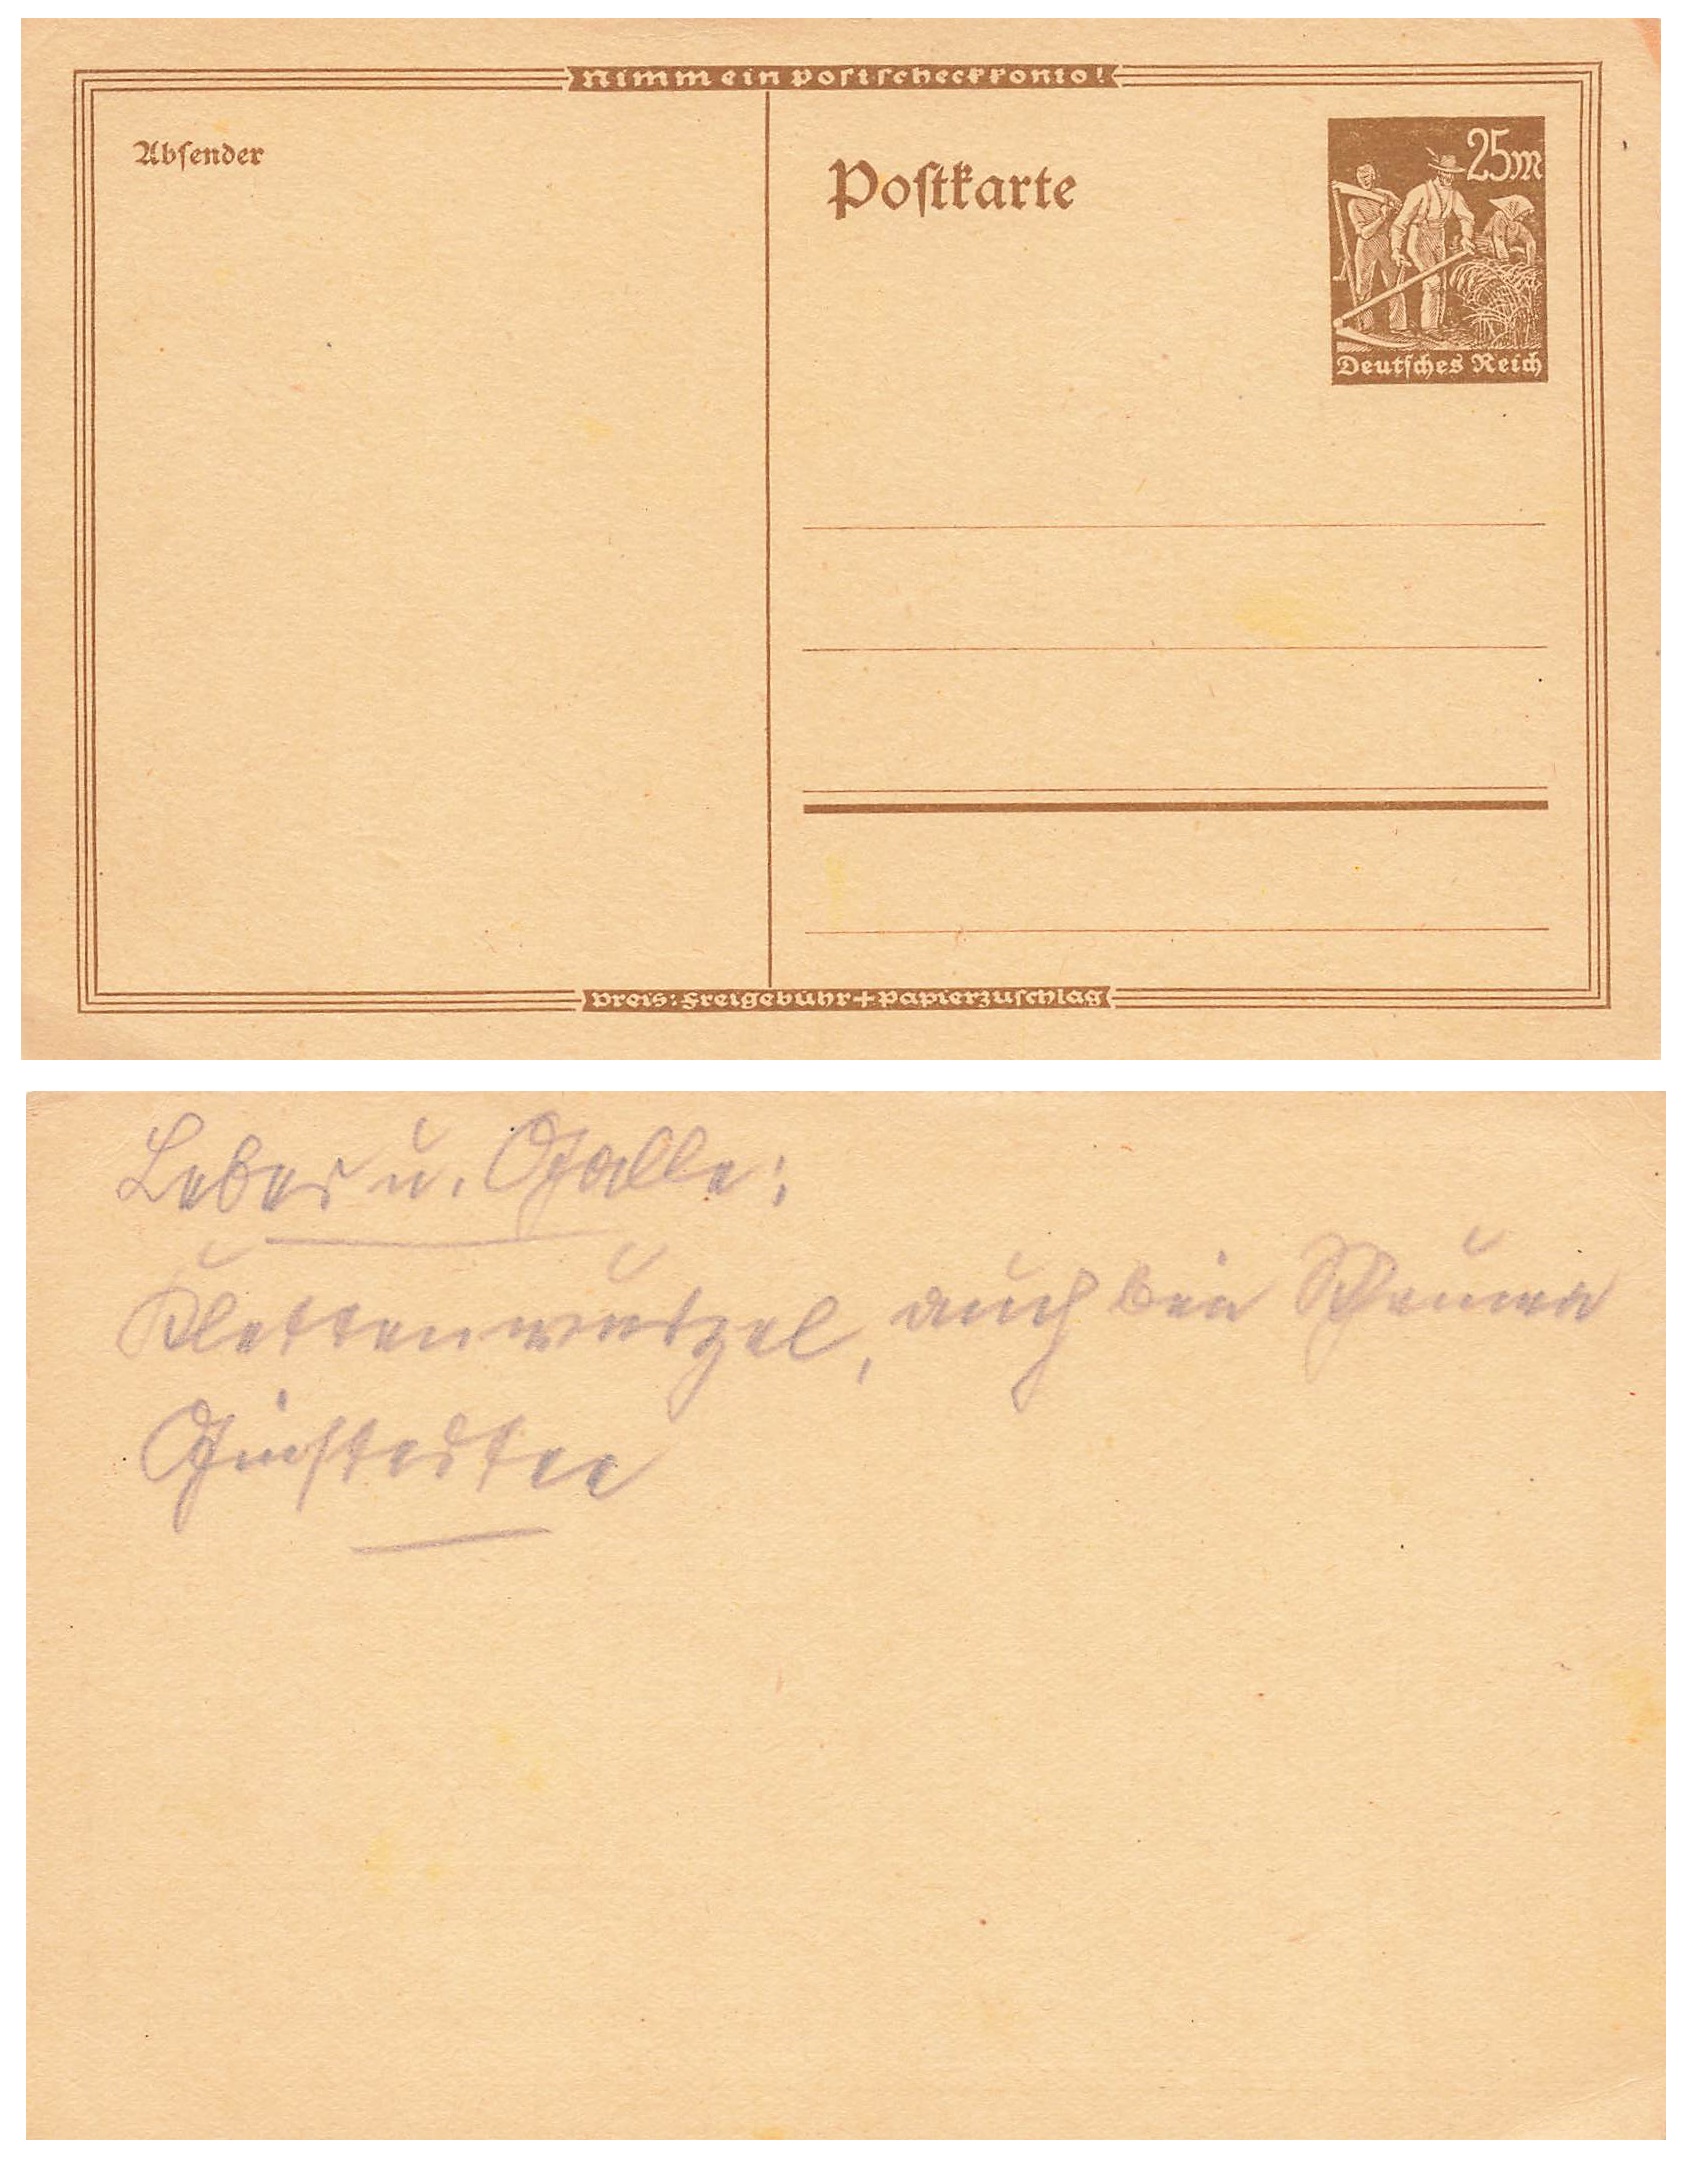 Nimm ein Postscheckkonto!
Absender
Postkarte
25 M
Deutsches Reich
Preis: Freigebühr + Papierzuschlag
Leber u. Galle:
Klettenwurzel, auch bei
Ginstertee